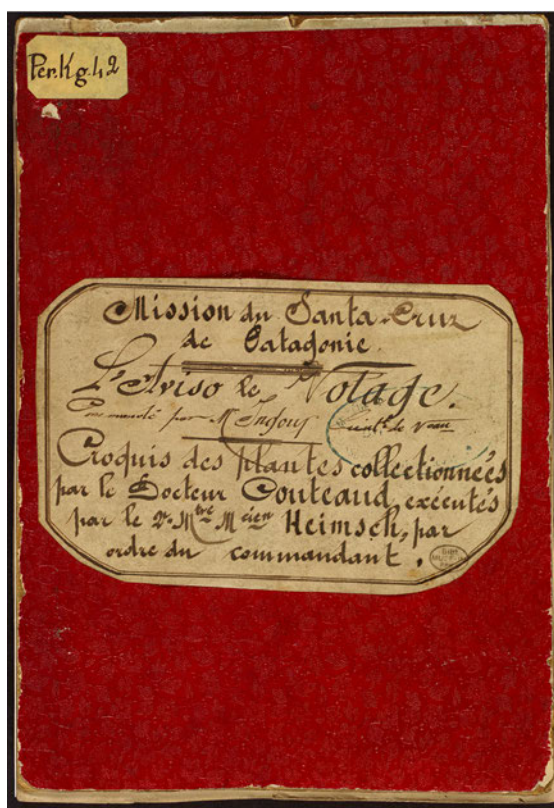 Per.Kg.42
Mission du Santa-Cruz
de Patagonie.
L'Aviso le Volage.
Commandé par Mr Ingouf de vau
Croquis des plantes collectionnées
par le Docteur Couteaud, exécutés
par le 2e Mtre Mcien Heimsch, par
ordre du commandant.